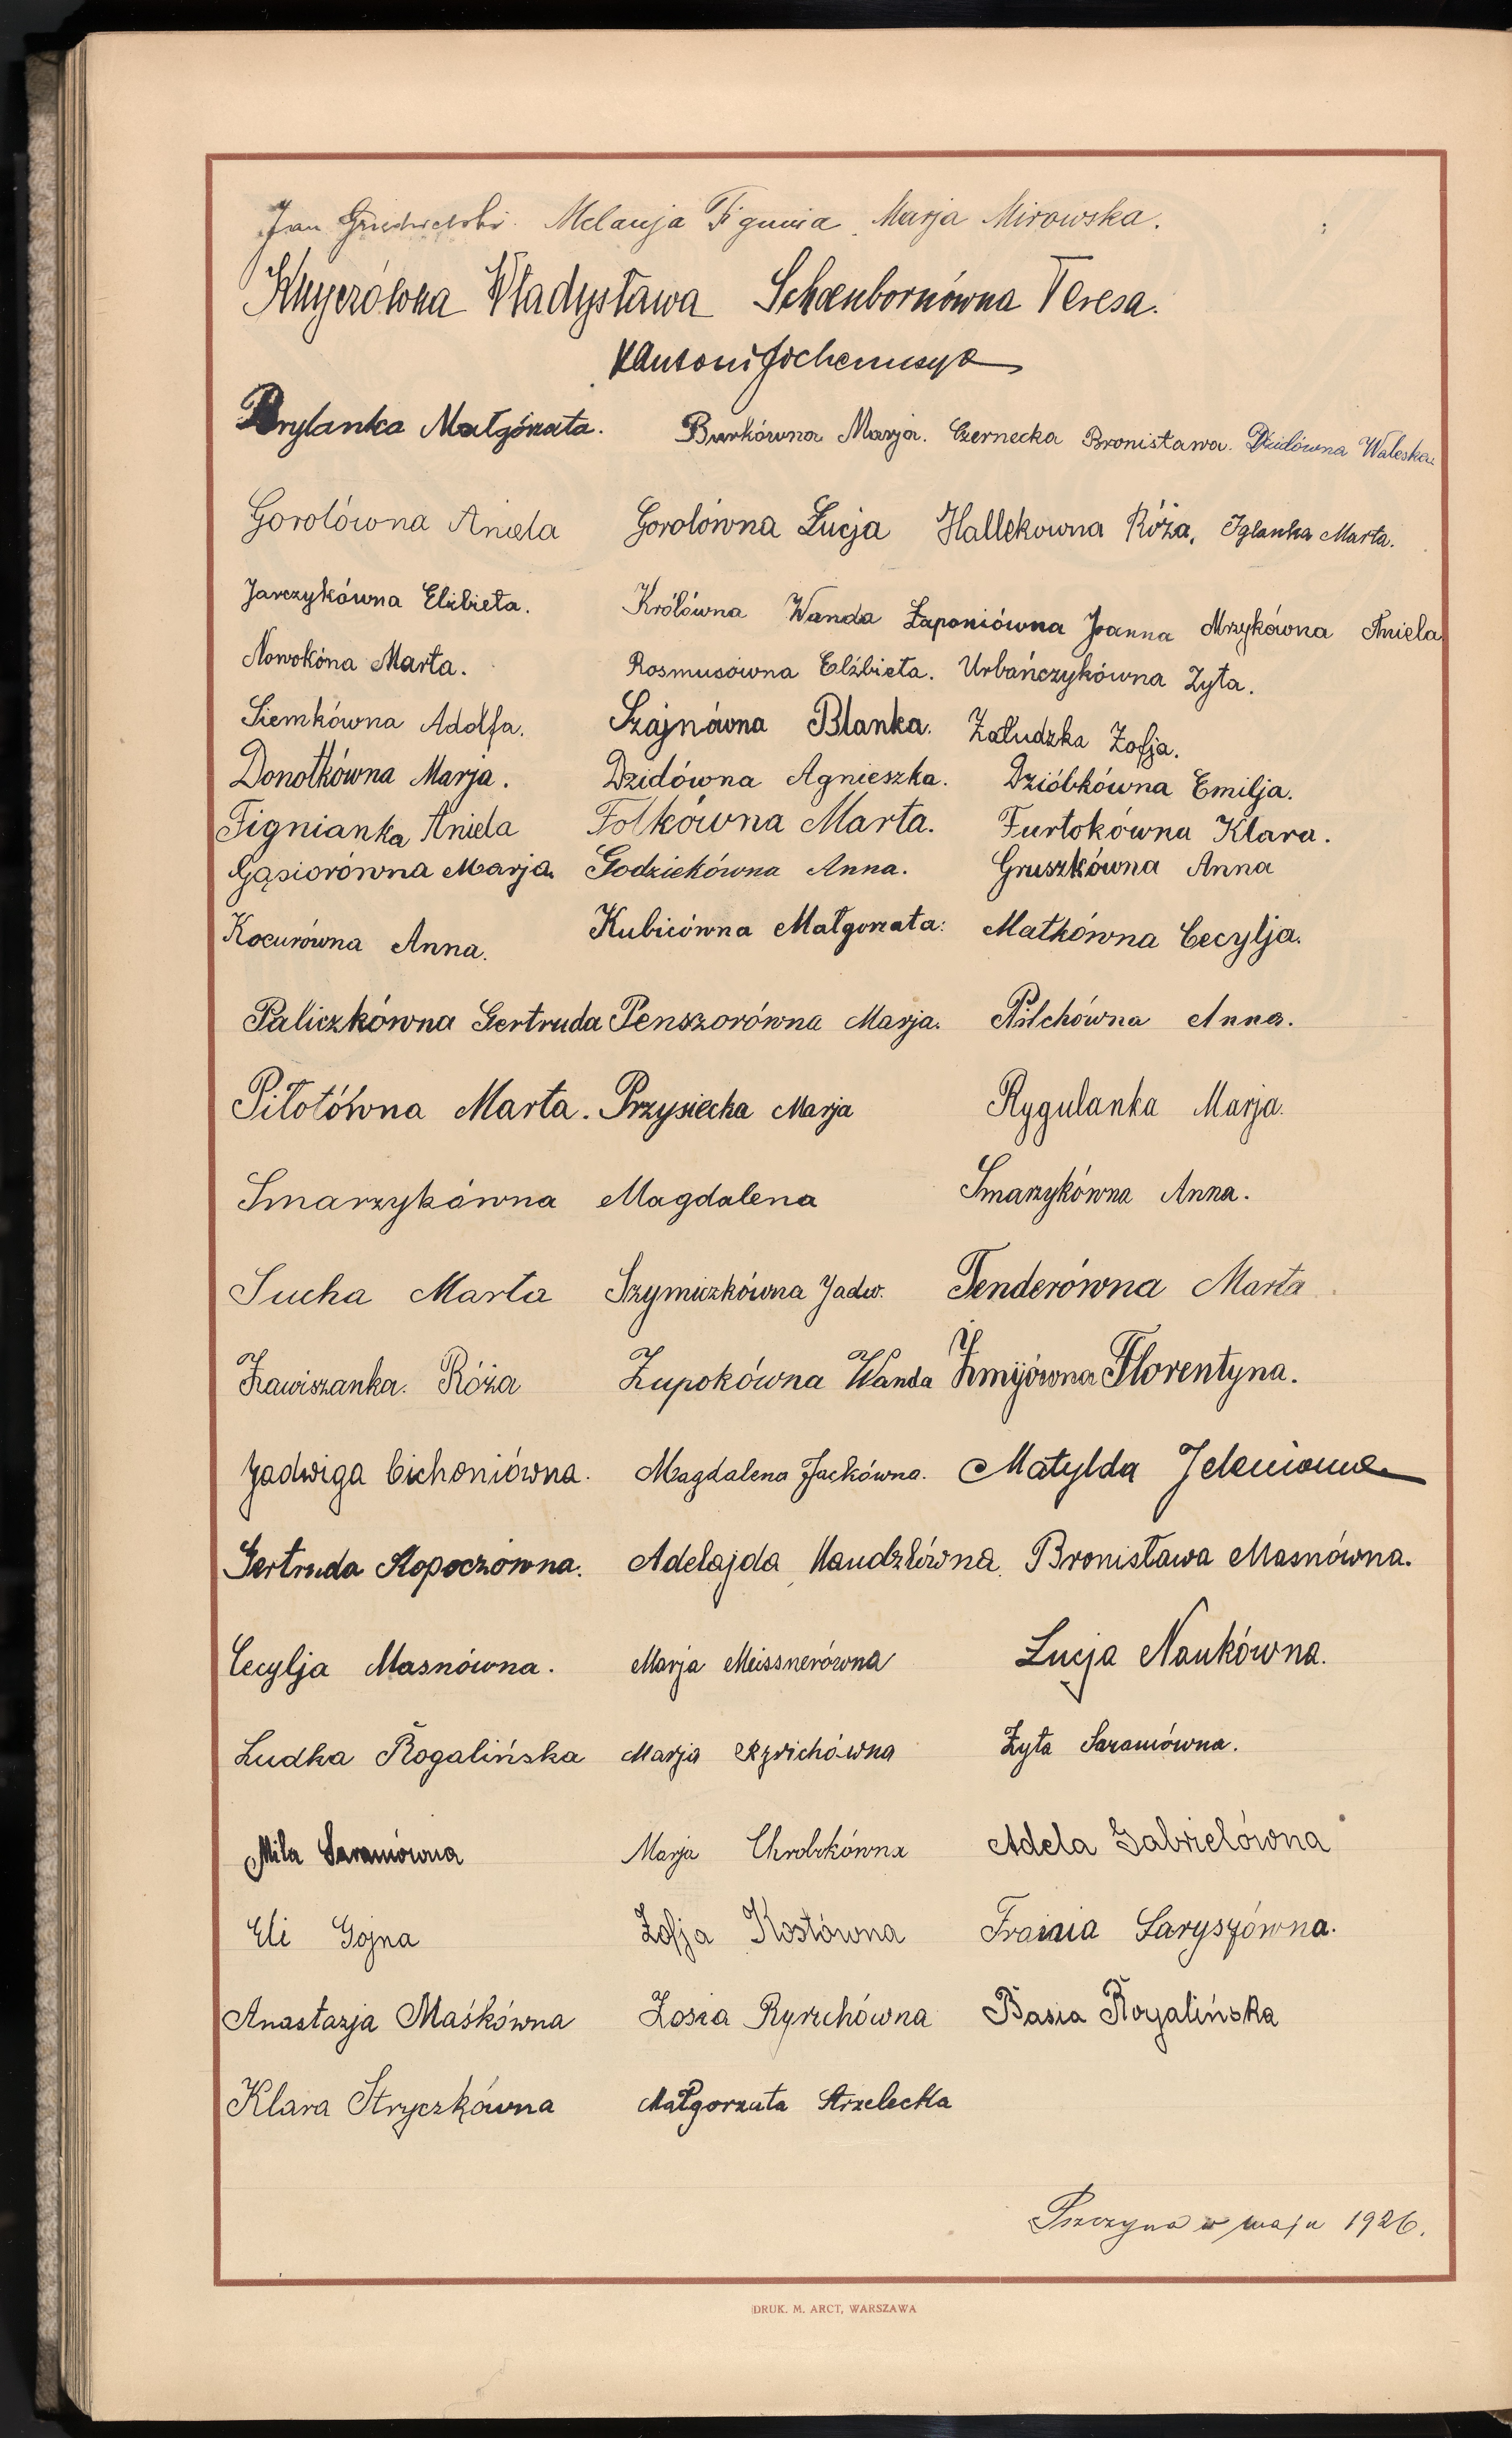 Jan Melanja Fignuia Marja Mirowska.
Knyczówna Władysława Schoenbornówna Teresa.
Antoni Jochemczyk
Brylanka Małgorzata. Burkówna Marja. Czernecka Bronisława. Dzidówna Waleska.
Gorolówna Aniela Gorolówna Łucja Hallekowna Róża, Iglanka Marta.
Jarczykówna Elżbieta. Królówna Wanda Łaponiówna Joanna Mrzykówna Aniela
Nowokóna Marta. Rosmusówna Elżbieta. Urbańczykówna Zyta.
Siemkówna Adolfa. Szajnówna Blanka. Załudzka Zofja.
Donotkówna Marja. Dzidówna Agnieszka. Dzióbkówna Emilja.
Fignianka Aniela Folkówna Marta. Furtokówna Klara.
Gąsiorówna Marja. Godziekówna Anna. Gruszkówna Anna
Kocurówna Anna. Kubicówna Małgorzata: Matkówna Cecylja.
Paliczkówna Gertruda Penszorówna Marja. Pilchówna Anna.
Piłotówna Marta. Przysiecka Marja Rygulanka Marja.
Smarzykówna Magdalena Smarzykówna Anna.
Sucha Marta Szymiczkówna Jadw. Tenderówna Marta
Zawiszanka. Róża Zupokówna Wanda Żmijówna Florentyna.
Jadwiga Cichoniówna. Magdalena Jackówna. Matylda Jeleniowna
Gertruda Kopoczówna. Adelajda Maudzlówna, Bronisława Masnówna.
Cecylja Masnówna. Marja Meissnerówna Łucja Naukówna.
Ludka Rogalińska Marja Ryrichówna Zyta Saraniówna.
Mila Saraniówna Marja Chrobokówna Adela Gabrielówna
Eli Gojna Zofja Kostówna Frania Saryszówna.
Anastazja Maśkówna Zosia Ryrichówna Basia Rogalińska
Klara Stryczkówna Małgorzata Strzelecka
Pszczyna w maju 1926.
DRUK. M. ARCT, WARSZAWA